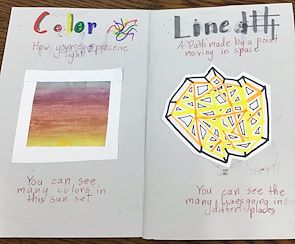 Color
How your eye perceive
light
You can see
many colors in
this sun set
Line
A Path made by a point
moving in space
You can see the
many lines going in
different places